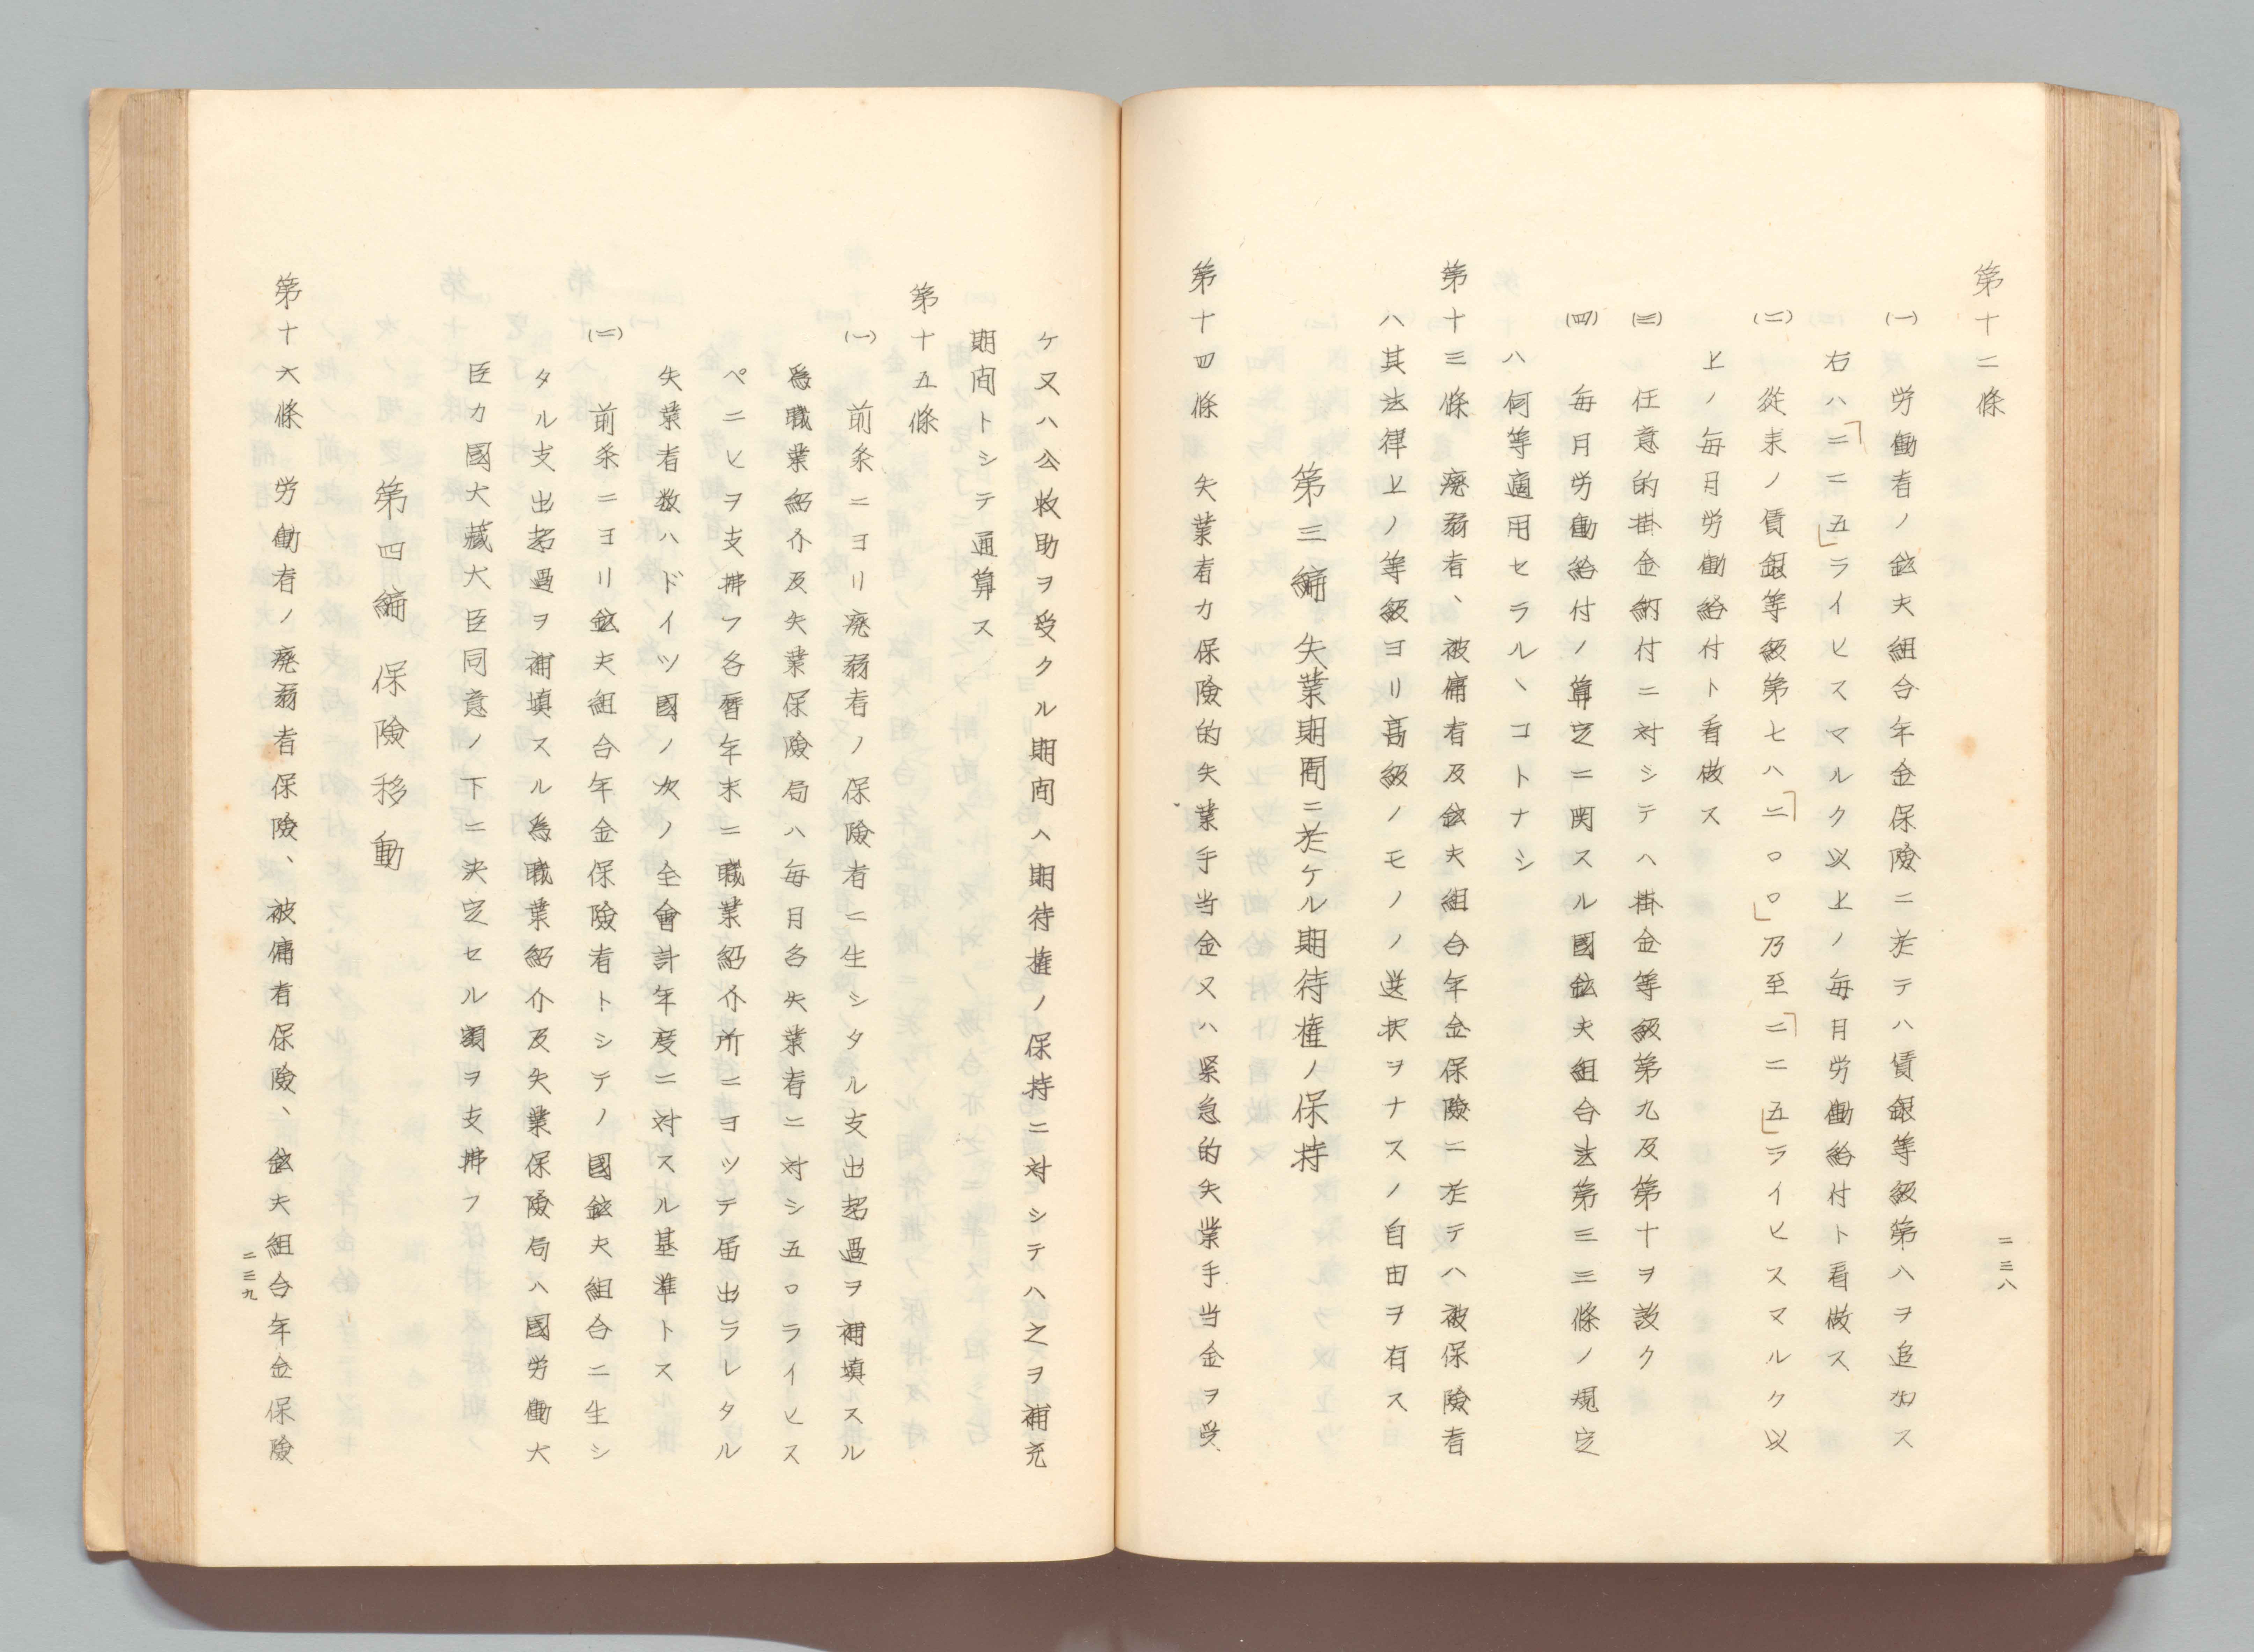 二三八
第十二條
(一) 労働者ノ鉱夫組合年金保險ニ於テハ賃銀等級第八ヲ追加ス
右ハ「二二五」ライヒスマルク以上ノ毎月労働給付ト看做ス
(二) 從来ノ賃銀等級第七ハ「二〇〇」乃至「二二五」ライヒスマルク以
上ノ毎月労働給付ト看做ス
(三) 任意的掛金納付ニ対シテハ掛金等級第九及第十ヲ設ク
(四) 毎月労働給付ノ算定ニ関スル國鉱夫組合法第三三條ノ規定
ハ何等適用セラルヽコトナシ
第十三條 廃弱者、被傭者及鉱夫組合年金保險ニ於テハ被保險者
ハ其法律上ノ等級ヨリ髙級ノモノノ選択ヲナスノ自由ヲ有ス
第三編 失業期間ニ於ケル期待権ノ保持
第十四條 失業者カ保險的失業手当金又ハ緊急的失業手当金ヲ受
ケ又ハ公救助ヲ受クル期間ハ期待権ノ保持ニ対シテハ之ヲ補充
期間トシテ通算ス
第十五條
(一) 前条ニヨリ廃弱者ノ保險者ニ生シタル支出超過ヲ補填スル
爲職業紹介及失業保險局ハ毎月各失業者ニ対シ五〇ライヒス
ペニヒヲ支拂フ各暦年末ニ職業紹介所ニヨツテ届出ラレタル
失業者数ハドイツ國ノ次ノ全會計年度ニ対スル基準トス
(二) 前条ニヨリ鉱夫組合年金保險者トシテノ國鉱夫組合ニ生シ
タル支出超過ヲ補填スル爲職業紹介及失業保險局ハ國労働大
臣カ國大藏大臣同意ノ下ニ決定セル額ヲ支拂フ
第四編 保險移動
第十六條 労働者ノ廃弱者保險、被傭者保險、鉱夫組合年金保險
二三九